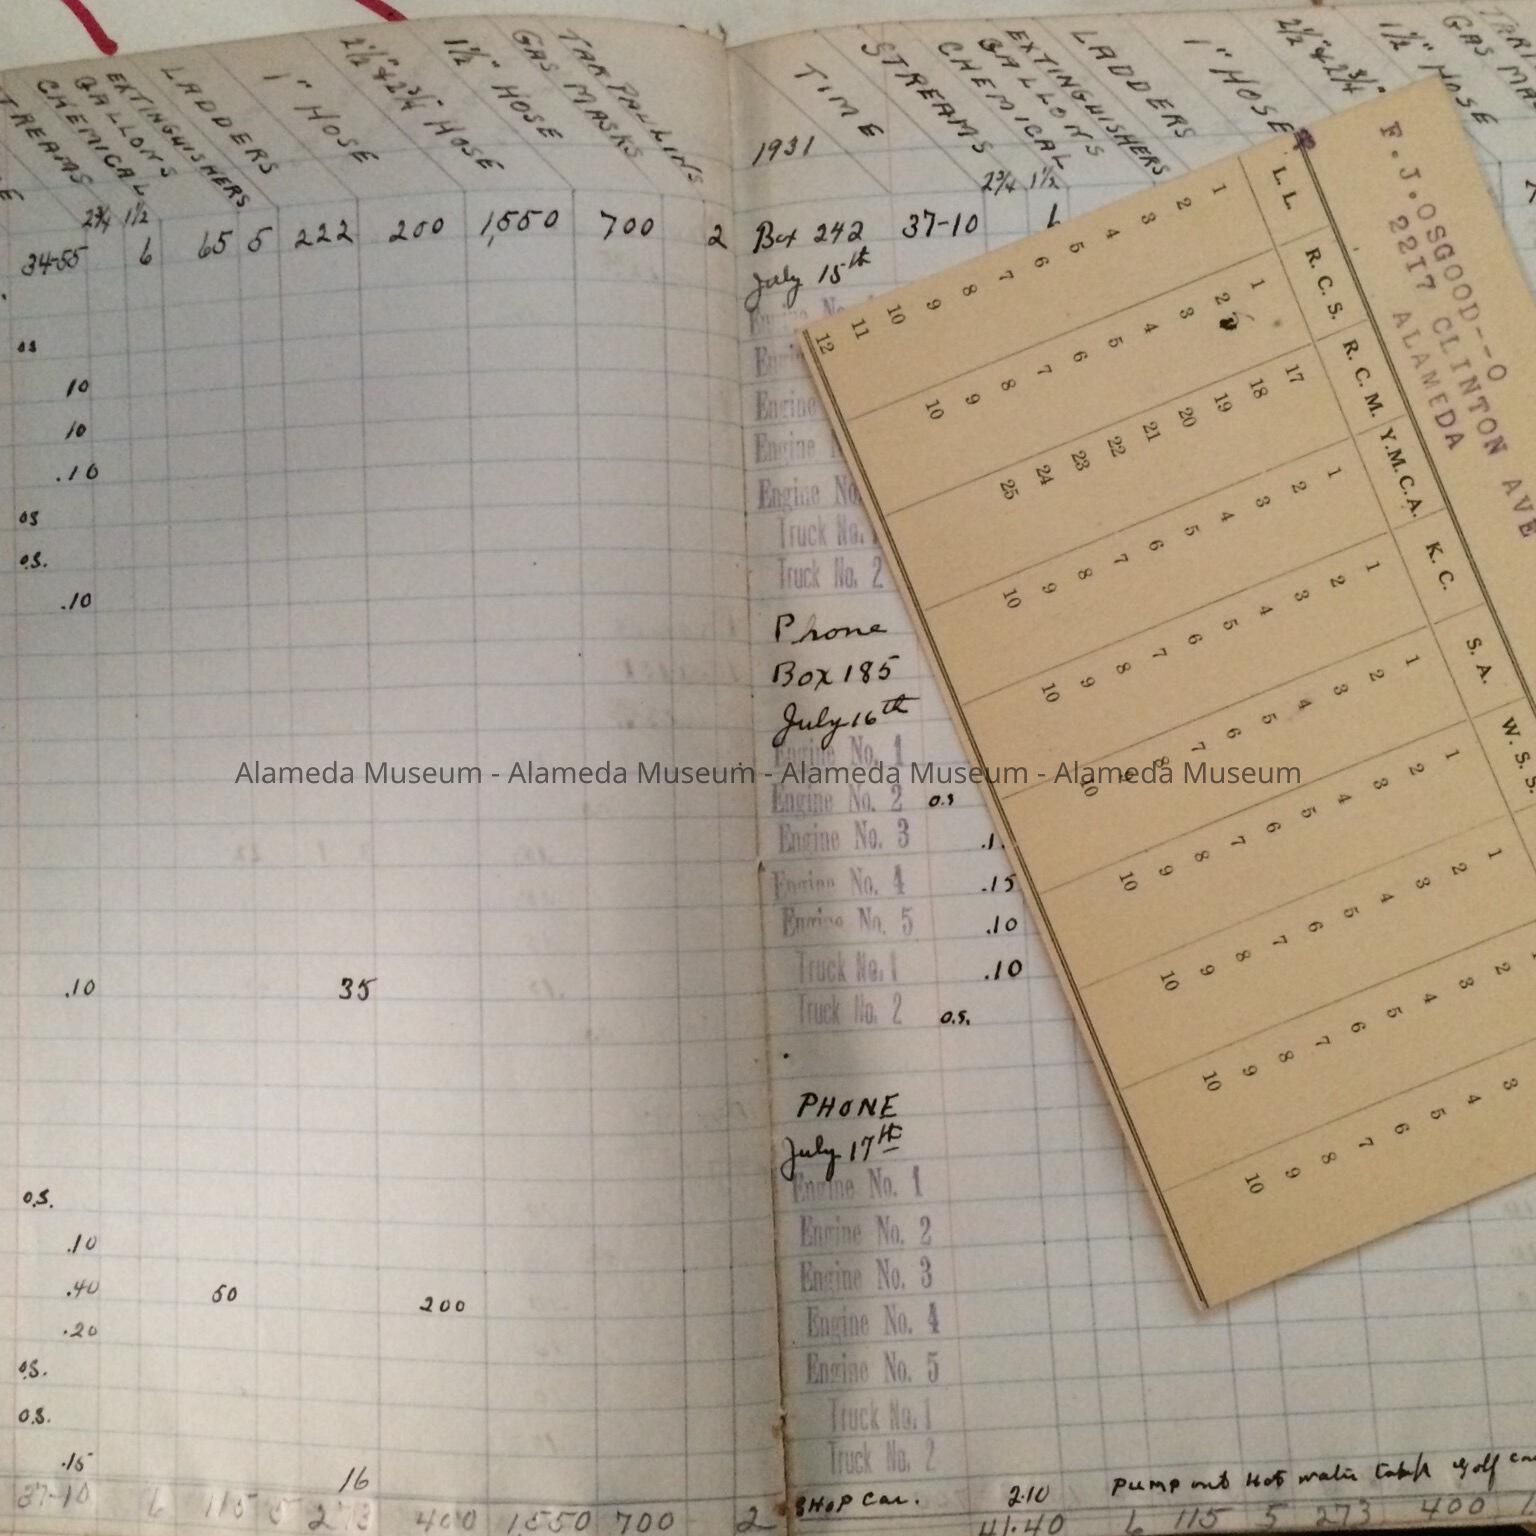 STREAMS
CHEMICAL
GALLONS
EXTINGUISHERS
LADDERS
1" HOSE
2½" & 2¾" HOSE
1½" HOSE
GAS MASKS
TARPALLINS
2¾ 1½
34-55 6 65 5 222 200 1,550 700 2
os
10
10
.10
os
o.s.
.10
.10 35
o.s.
.10
.40 50 200
.20
o.s.
o.s.
.15 16
37-10 6 115 5 273 400 1,550 700 2
1931
TIME
STREAMS
CHEMICAL
GALLONS
EXTINGUISHERS
LADDERS
1" HOSE
2½" & 2¾"
1½" HOSE
GAS
2¾ 1½
Box 242 37-10 6
July 15th
Engine
Engine
Engine No.
Truck No.
Truck No. 2
Phone
Box 185
July 16th
Engine No. 1
Engine No. 2 o.s
Engine No. 3 .1
Engine No. 4 .15
Engine No. 5 .10
Truck No. 1 .10
Truck No. 2 o.s.
PHONE
July 17th
Engine No. 1
Engine No. 2
Engine No. 3
Engine No. 4
Engine No. 5
Truck No. 1
Truck No. 2
SHOP Car. 2.10 Pump out Hot water Golf
41.40 6 115 5 273 400
F.J.OSGOOD--O
2217 CLINTON AVE
ALAMEDA
L. L. 1 2 3 4 5 6 7 8 9 10 11 12
R. C. S. 1 2 3 4 5 6 7 8 9 10
R. C. M. 17 18 19 20 21 22 23 24 25
Y.M.C.A. 1 2 3 4 5 6 7 8 9 10
K. C. 1 2 3 4 5 6 7 8 9 10
S. A. 1 2 3 4 5 6 7 8 9 10
W. S. S. 1 2 3 4 5 6 7 8 9 10
1 2 3 4 5 6 7 8 9 10
2 3 4 5 6 7 8 9 10
3 4 5 6 7 8 9 10
Alameda Museum - Alameda Museum - Alameda Museum - Alameda Museum